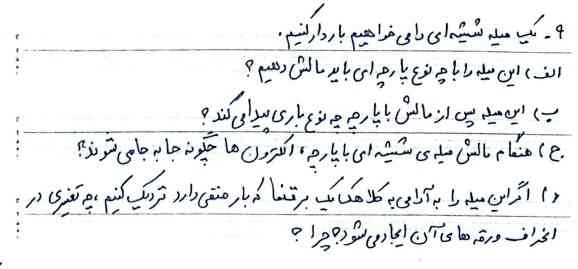 ۹- یک میله شیشه ای را می خواهیم باردار کنیم.
الف) این میله را با چه نوع پارچه ای باید مالش دهیم؟
ب) این میله پس از مالش با پارچه چه نوع باری پیدا می کند؟
ج) هنگام مالش میله ی شیشه ای با پارچه، الکترون ها چگونه جا به جا می شوند؟
د) اگر این میله را به آرامی به کلاهک یک برقنما که بار منفی دارد نزدیک کنیم، چه تغییری در
انحراف ورقه های آن ایجاد می شود؟ چرا؟